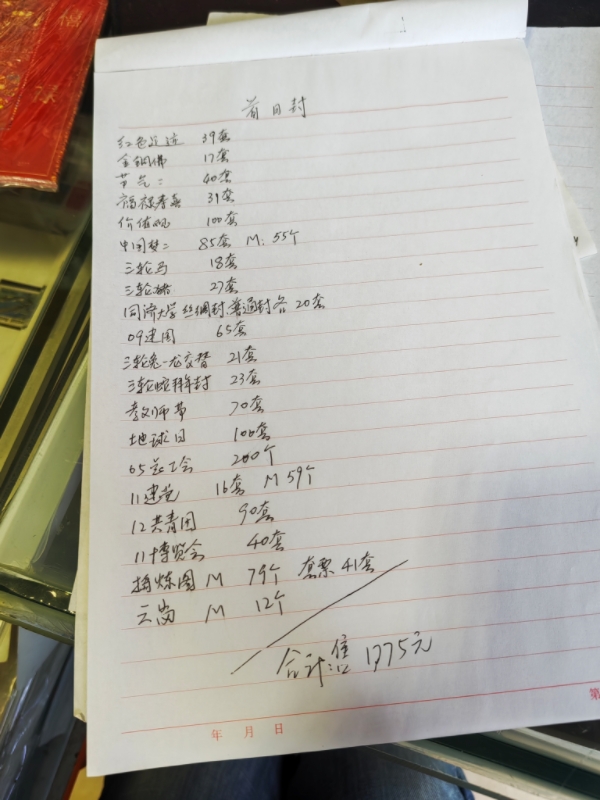 首日封
红色足迹 39套
金铜佛 17套
节气二 40套
福禄寿喜 39套
价值观 100套
中国梦二 85套 M:55个
三轮马 18套
三轮猪 27套
同济大学丝绸封.普通封各20套
09建国 65套
三轮兔-龙交替 21套
三轮蛇拜年封 23套
教师节 70套
地球日 100套
05总工会 200个
11建党 16套 M 59个
12共青团 90套
11博览会 40套
捣练图 M 79个 套票 41套
云岗 M 12个
合计:售 1775元
年 月 日
第